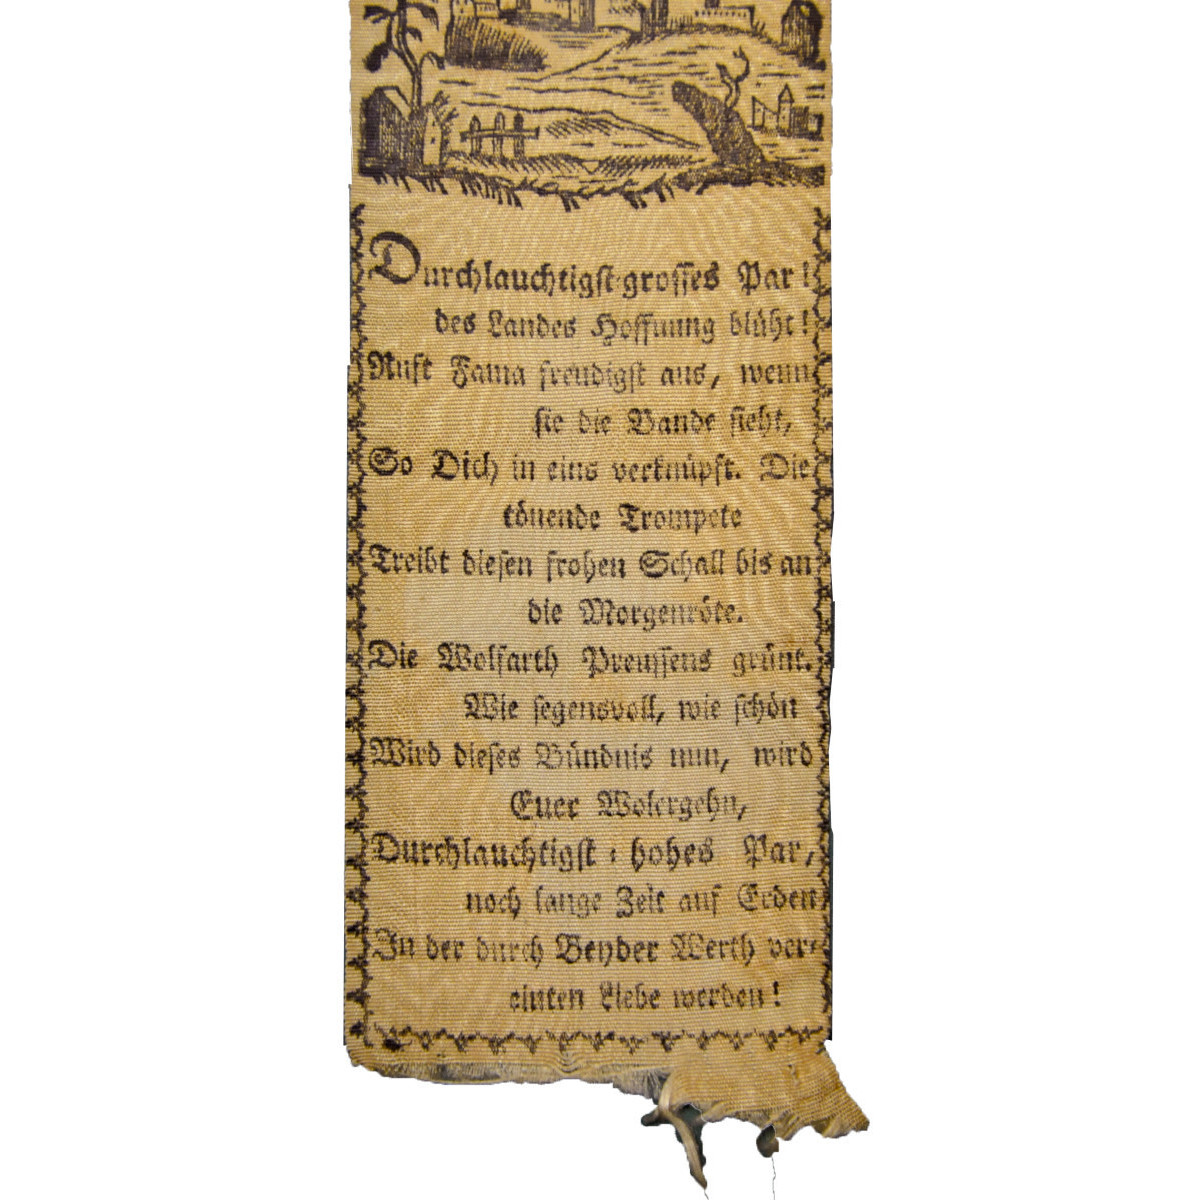 Durchlauchtigst-grosses Par!
des Landes Hoffnung blüht!
Ruft Fama freudigst aus, wenn
sie die Bande sieht,
So Dich in eins verknüpft. Die
tönende Trompete
Treibt diesen frohen Schall bis an
die Morgenröte.
Die Wolfarth Preussens grünt.
Wie segensvoll, wie schön
Wird dieses Bündnis nun, wird
Euer Wolergehn,
Durchlauchtigst-hohes Par,
noch lange Zeit auf Erden
In der durch Beyder Werth ver-
einten Liebe werden!